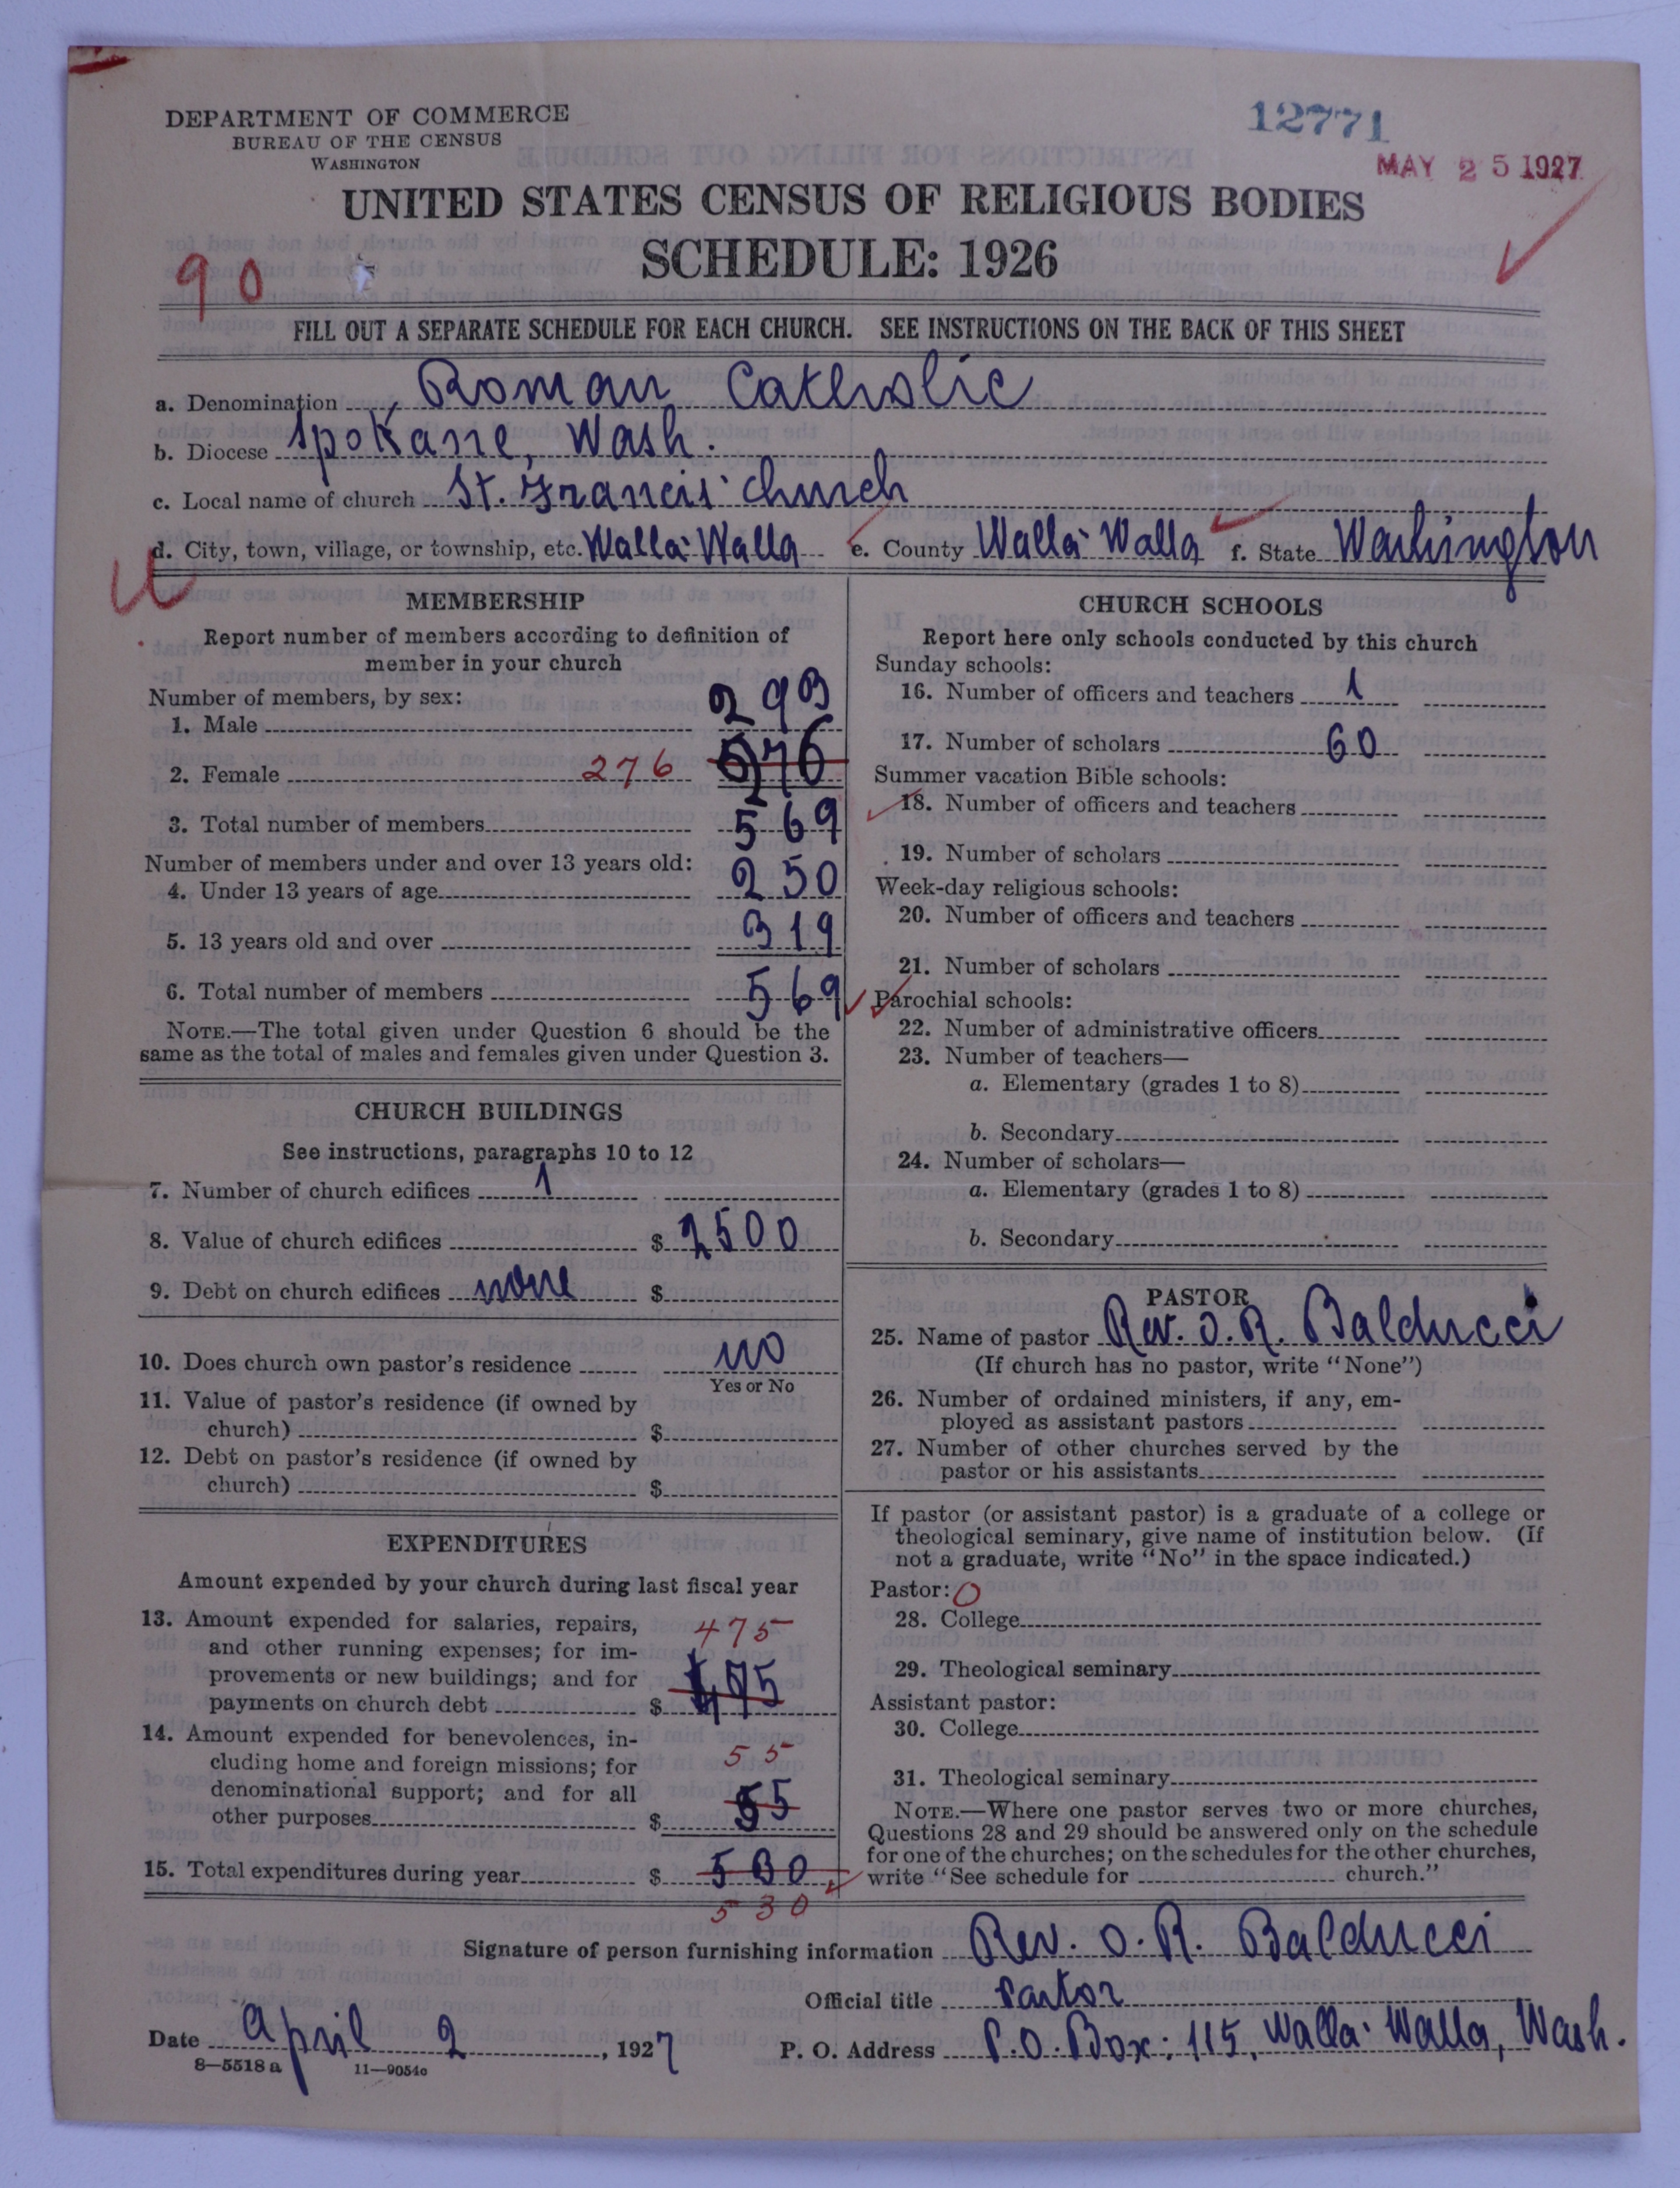 DEPARTMENT OF COMMERCE
BUREAU OF THE CENSUS
WASHINGTON
12771
MAY 25 1927
UNITED STATES CENSUS OF RELIGIOUS BODIES
SCHEDULE: 1926
90
FILL OUT A SEPARATE SCHEDULE FOR EACH CHURCH. SEE INSTRUCTIONS ON THE BACK OF THIS SHEET
a. Denomination Roman Catholic
b. Diocese Spokane, Wash.
c. Local name of church St. Francis' Church
d. City, town, village, or township, etc. Walla-Walla e. County Walla-Walla f. State Washington
MEMBERSHIP
Report number of members according to definition of
member in your church
Number of members, by sex:
1. Male 293
2. Female 276 576
3. Total number of members 569
Number of members under and over 13 years old:
4. Under 13 years of age 250
5. 13 years old and over 319
6. Total number of members 569
NOTE.—The total given under Question 6 should be the
same as the total of males and females given under Question 3.
CHURCH BUILDINGS
See instructions, paragraphs 10 to 12
7. Number of church edifices 1
8. Value of church edifices $ 2500
9. Debt on church edifices none $
10. Does church own pastor's residence no
Yes or No
11. Value of pastor's residence (if owned by
church) $
12. Debt on pastor's residence (if owned by
church) $
EXPENDITURES
Amount expended by your church during last fiscal year
13. Amount expended for salaries, repairs,
and other running expenses; for im-
provements or new buildings; and for
payments on church debt $ 475
475
14. Amount expended for benevolences, in-
cluding home and foreign missions; for
denominational support; and for all
other purposes $ 55
55
15. Total expenditures during year $ 530
530
CHURCH SCHOOLS
Report here only schools conducted by this church
Sunday schools:
16. Number of officers and teachers 1
17. Number of scholars 60
Summer vacation Bible schools:
18. Number of officers and teachers
19. Number of scholars
Week-day religious schools:
20. Number of officers and teachers
21. Number of scholars
Parochial schools:
22. Number of administrative officers
23. Number of teachers—
a. Elementary (grades 1 to 8)
b. Secondary
24. Number of scholars—
a. Elementary (grades 1 to 8)
b. Secondary
PASTOR
25. Name of pastor Rev. O. R. Balducci
(If church has no pastor, write "None")
26. Number of ordained ministers, if any, em-
ployed as assistant pastors
27. Number of other churches served by the
pastor or his assistants
If pastor (or assistant pastor) is a graduate of a college or
theological seminary, give name of institution below. (If
not a graduate, write "No" in the space indicated.)
Pastor: O
28. College
29. Theological seminary
Assistant pastor:
30. College
31. Theological seminary
NOTE.—Where one pastor serves two or more churches,
Questions 28 and 29 should be answered only on the schedule
for one of the churches; on the schedules for the other churches,
write "See schedule for church."
Signature of person furnishing information Rev. O. R. Balducci
Official title Pastor
Date April 2, 1927 P. O. Address P.O. Box: 115, Walla-Walla, Wash.
8—5518 a 11—9054c